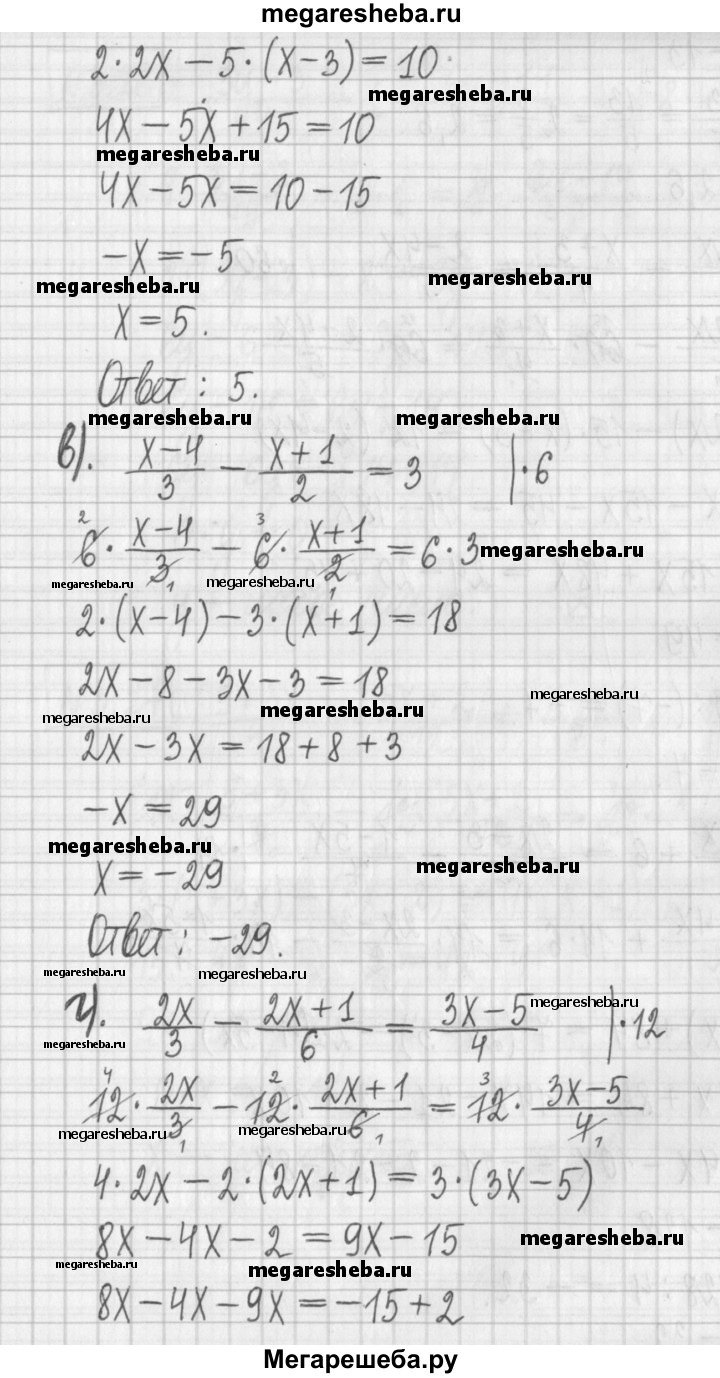 megaresheba.ru
2·2x − 5·(x−3) = 10
megaresheba.ru
4x − 5x + 15 = 10
megaresheba.ru
4x − 5x = 10 − 15
−x = −5
megaresheba.ru megaresheba.ru
x = 5.
Ответ: 5.
megaresheba.ru megaresheba.ru
в). (x−4)/3 − (x+1)/2 = 3 |·6
²6·(x−4)/3₁ − ³6·(x+1)/2₁ = 6·3
megaresheba.ru
megaresheba.ru megaresheba.ru
2·(x−4) − 3·(x+1) = 18
2x − 8 − 3x − 3 = 18
megaresheba.ru
megaresheba.ru megaresheba.ru
2x − 3x = 18 + 8 + 3
−x = 29
megaresheba.ru megaresheba.ru
x = −29
Ответ: −29.
megaresheba.ru megaresheba.ru
г). 2x/3 − (2x+1)/6 = (3x−5)/4 |·12
megaresheba.ru megaresheba.ru
⁴12·2x/3₁ − ²12·(2x+1)/6₁ = ³12·(3x−5)/4₁
megaresheba.ru megaresheba.ru
4·2x − 2·(2x+1) = 3·(3x−5)
8x − 4x − 2 = 9x − 15
megaresheba.ru
megaresheba.ru megaresheba.ru
8x − 4x − 9x = −15 + 2
Мегарешеба.ру